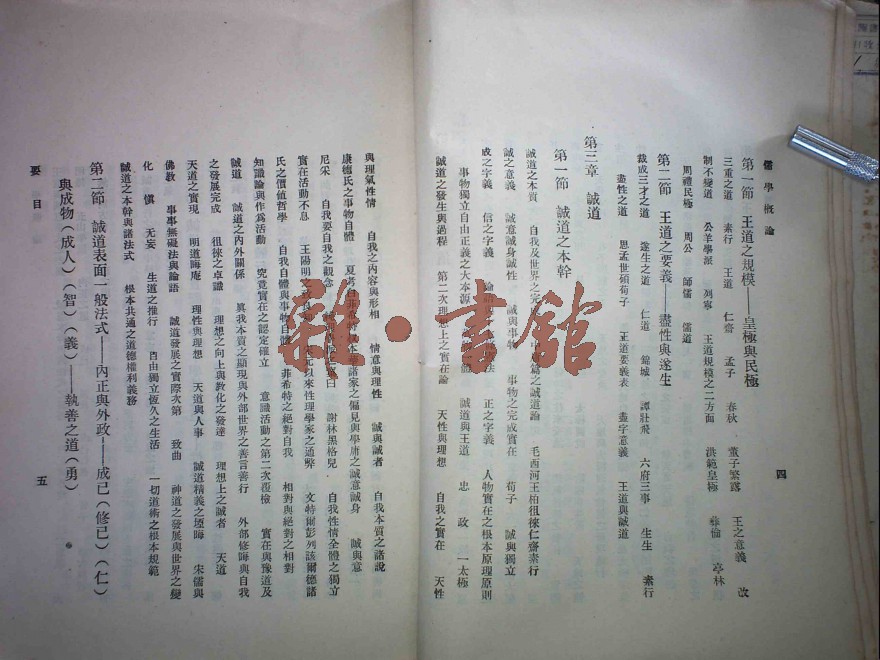 儒學概論
四
第一節 王道之規模——皇極與民極
三重之道 素行 王道 仁齋 孟子 春秋 董子繁露 王之意義 改
制不變道 公羊學派 列寧 王道規模之二方面 洪範皇極 彝倫 亭林
周禮民極 周公 師儒 儒道
第二節 王道之要義——盡性與遂生
裁成三才之道 遂生之道 仁道 錦城 譚壯飛 六府三事 生生 素行
盡性之道 思孟世碩荀子 王道要義表 盡字意義 王道與誠道
第三章 誠道
第一節 誠道之本幹
誠道之本質 自我及世界之完 中庸 篇之誠道論 毛西河王柏徂徠仁齋素行
誠之意義 誠意誠身誠性 誠與事物 事物之完成實在 荀子 誠與獨立
成之字義 信之字義 論語 法 正之字義 人物實在之根本原理原則
事物獨立自由正義之大本源 誠道與王道 忠 政 一太極
誠道之發生與過程 第二次理想上之實在論 天性與理想 自我之實在 天性
與理氣性情 自我之內容與形相 情意與理性 誠與誠者 自我本質之諸說
康德氏之事物自體 夏考白菲息特叔本華諸家之偏見與學庸之誠意誠身 誠與意
尼采 自我要自我之觀念 謝林黑格兒 自我性情全體之獨立
實在活動不息 王陽明之致良知 以來性理學家之通弊 文特爾彭列該爾德諸
氏之價值哲學 自我自體與事物自體 菲希特之絕對自我 相對與絕對之相對
知識論與作爲活動 究竟實在之認定確立 意識活動之第二次再檢 實在與豫道及
誠道 誠道之內外關係 眞我本質之顯現與外部世界之善言善行 外部修晦與自我
之發展完成 徂徠之卓識 理想之向上與敎化之發達 理想上之誠者 天道
天道之實現 明道晦庵 理性與理想 天道與人事 誠道精義之堙晦 宋儒與
佛敎 事事無礙法與論語 誠道發展之實際次第 致曲 神道之發展與世界之變
化 愼 无妄 生道之推行 自由獨立恆久之生活 一切道術之根本規範
誠道之本幹與諸法式 根本共通之道德權利義務
第二節 誠道表面一般法式——內正與外政——成己(修己)(仁)
與成物(成人)(智)(義)——執善之道(勇)
要目
五
雜·書館